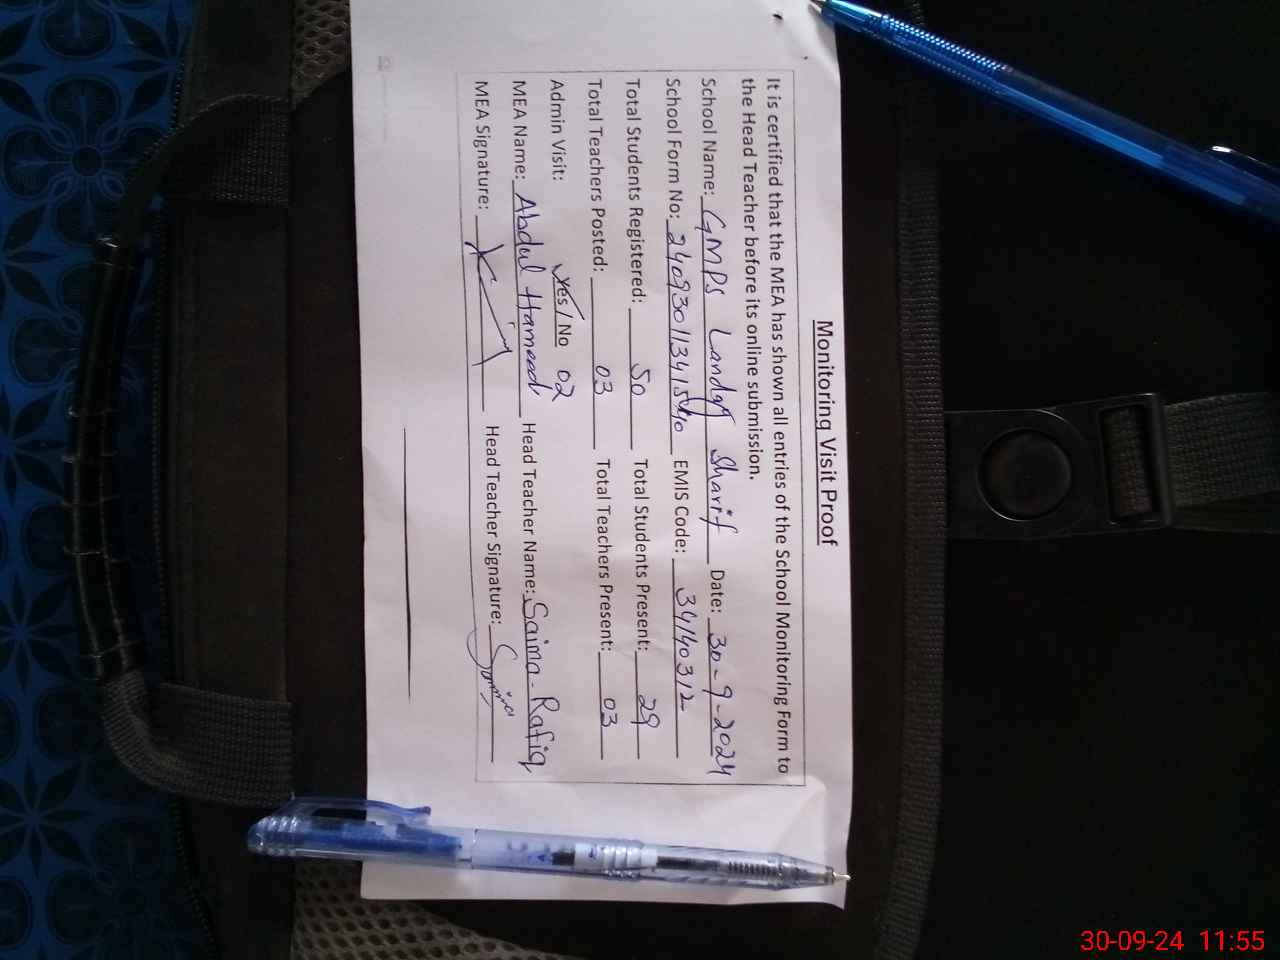 Monitoring Visit Proof
It is certified that the MEA has shown all entries of the School Monitoring Form to
the Head Teacher before its online submission.
School Name: GMPS Landay Sharif Date: 30-9-2024
School Form No: EMIS Code: 34140312
Total Students Registered: 50 Total Students Present: 29
Total Teachers Posted: 03 Total Teachers Present: 03
Admin Visit: Yes / No 02
MEA Name: Abdul Hameed Head Teacher Name: Saima-Rafiq
MEA Signature: Head Teacher Signature: Saima
30-09-24 11:55